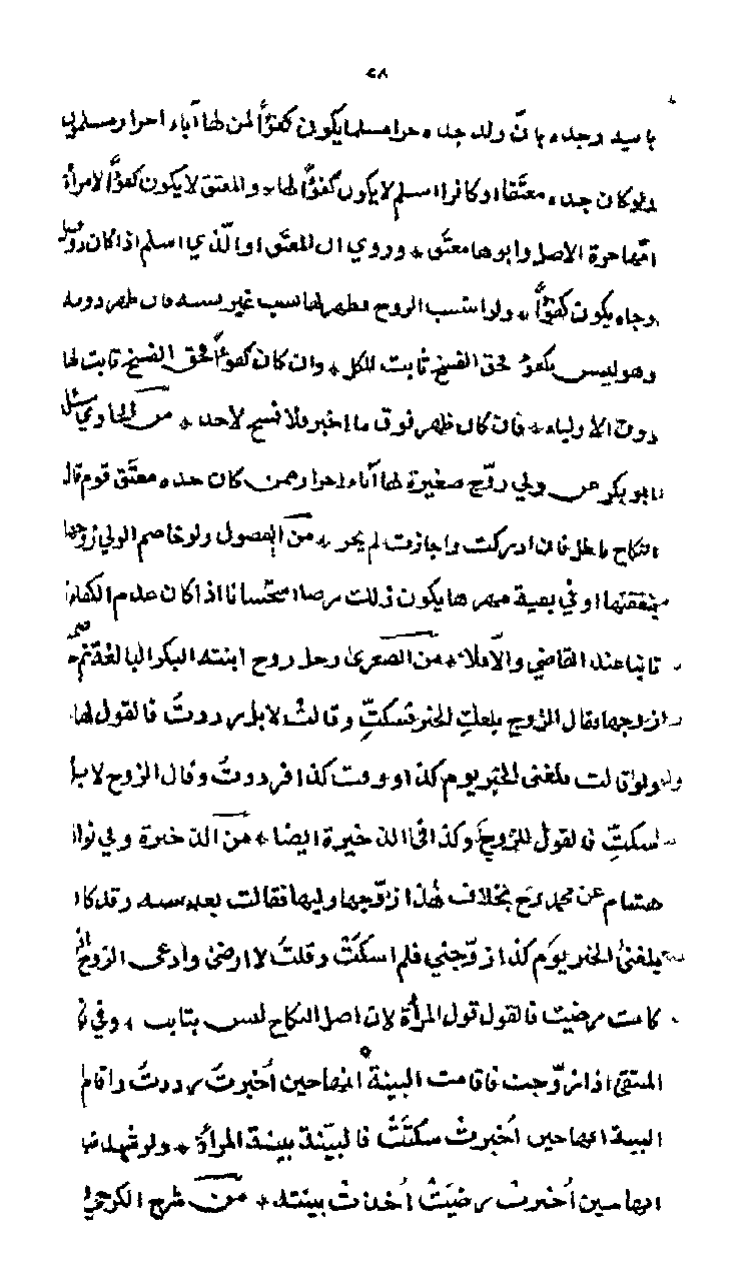 ٢٨
بابيه وجده بان ولد جده حرا مسلما يكون كفؤًا لمن لها آباء احرار مسلمون
ولو كان جده معتَقا او كافرا اسلم لا يكون كفؤًا لها * والمعتق لا يكون كفؤًا لامرأة
امّها حرة الاصل وابوها معتَق * وروي ان المعتَق او الّذي اسلم اذا كان
وجاه يكون كفؤًا * ولو انتسب الزوج فظهر لها نسب غير نسبه فان ظهر دونه
وهو ليس بكفؤ فحق الفسخ ثابت للكل * وان كان كفؤًا فحق الفسخ ثابت لها
دون الاولياء * فان كان ظهر فوق ما اخبر فلا فسخ لاحد * من الحاوي سئل
ابو بكر عن ولي زوّج صغيرة لها آباء احرار ممن كان جده معتَق قوم قال
النكاح باطل فان ادركت واجازت لم يجز * من الفصول ولو خاصم الولي زوجها
بنفقتها او في بقية مهرها يكون ذلك رضا استحسانا اذا كان عدم الكفاءة
ثابتا عند القاضي والّا فلا * من الصغرى رجل زوج ابنته البكر البالغة ثم
زوجها فقال الزوج بلغكِ الخبر فسكتِّ وقالتْ لا بل رددتُ فالقول لها
ولو قالت بلغني الخبر يوم كذا او وقت كذا فرددتُ وقال الزوج لا بل
سكتِّ فالقول للزوج وكذا في الذخيرة ايضا * من الذخيرة وفي نوادر
هشام عن محمد رح بخلاف هذا زوّجها وليها فقالت بعد سنة وقد كان
بلغنيُ الخبر يوم كذا زوّجني فلم اسكتْ وقلتُ لا ارضى وادعى الزوج
كانت رضيت فالقول قول المرأة لان اصل النكاح ليس بثابت * وفي
المنتقى اذا زوّجت فاقامت البينة انها حين اُخبرتْ رددتْ واقام
البينة انها حين اُخبرتْ سكتَتْ فالبيّنة بينة المرأة * ولو شهد
انها حين اُخبرت رضيَتْ اُخذتْ بينته * من شرح الكرخي